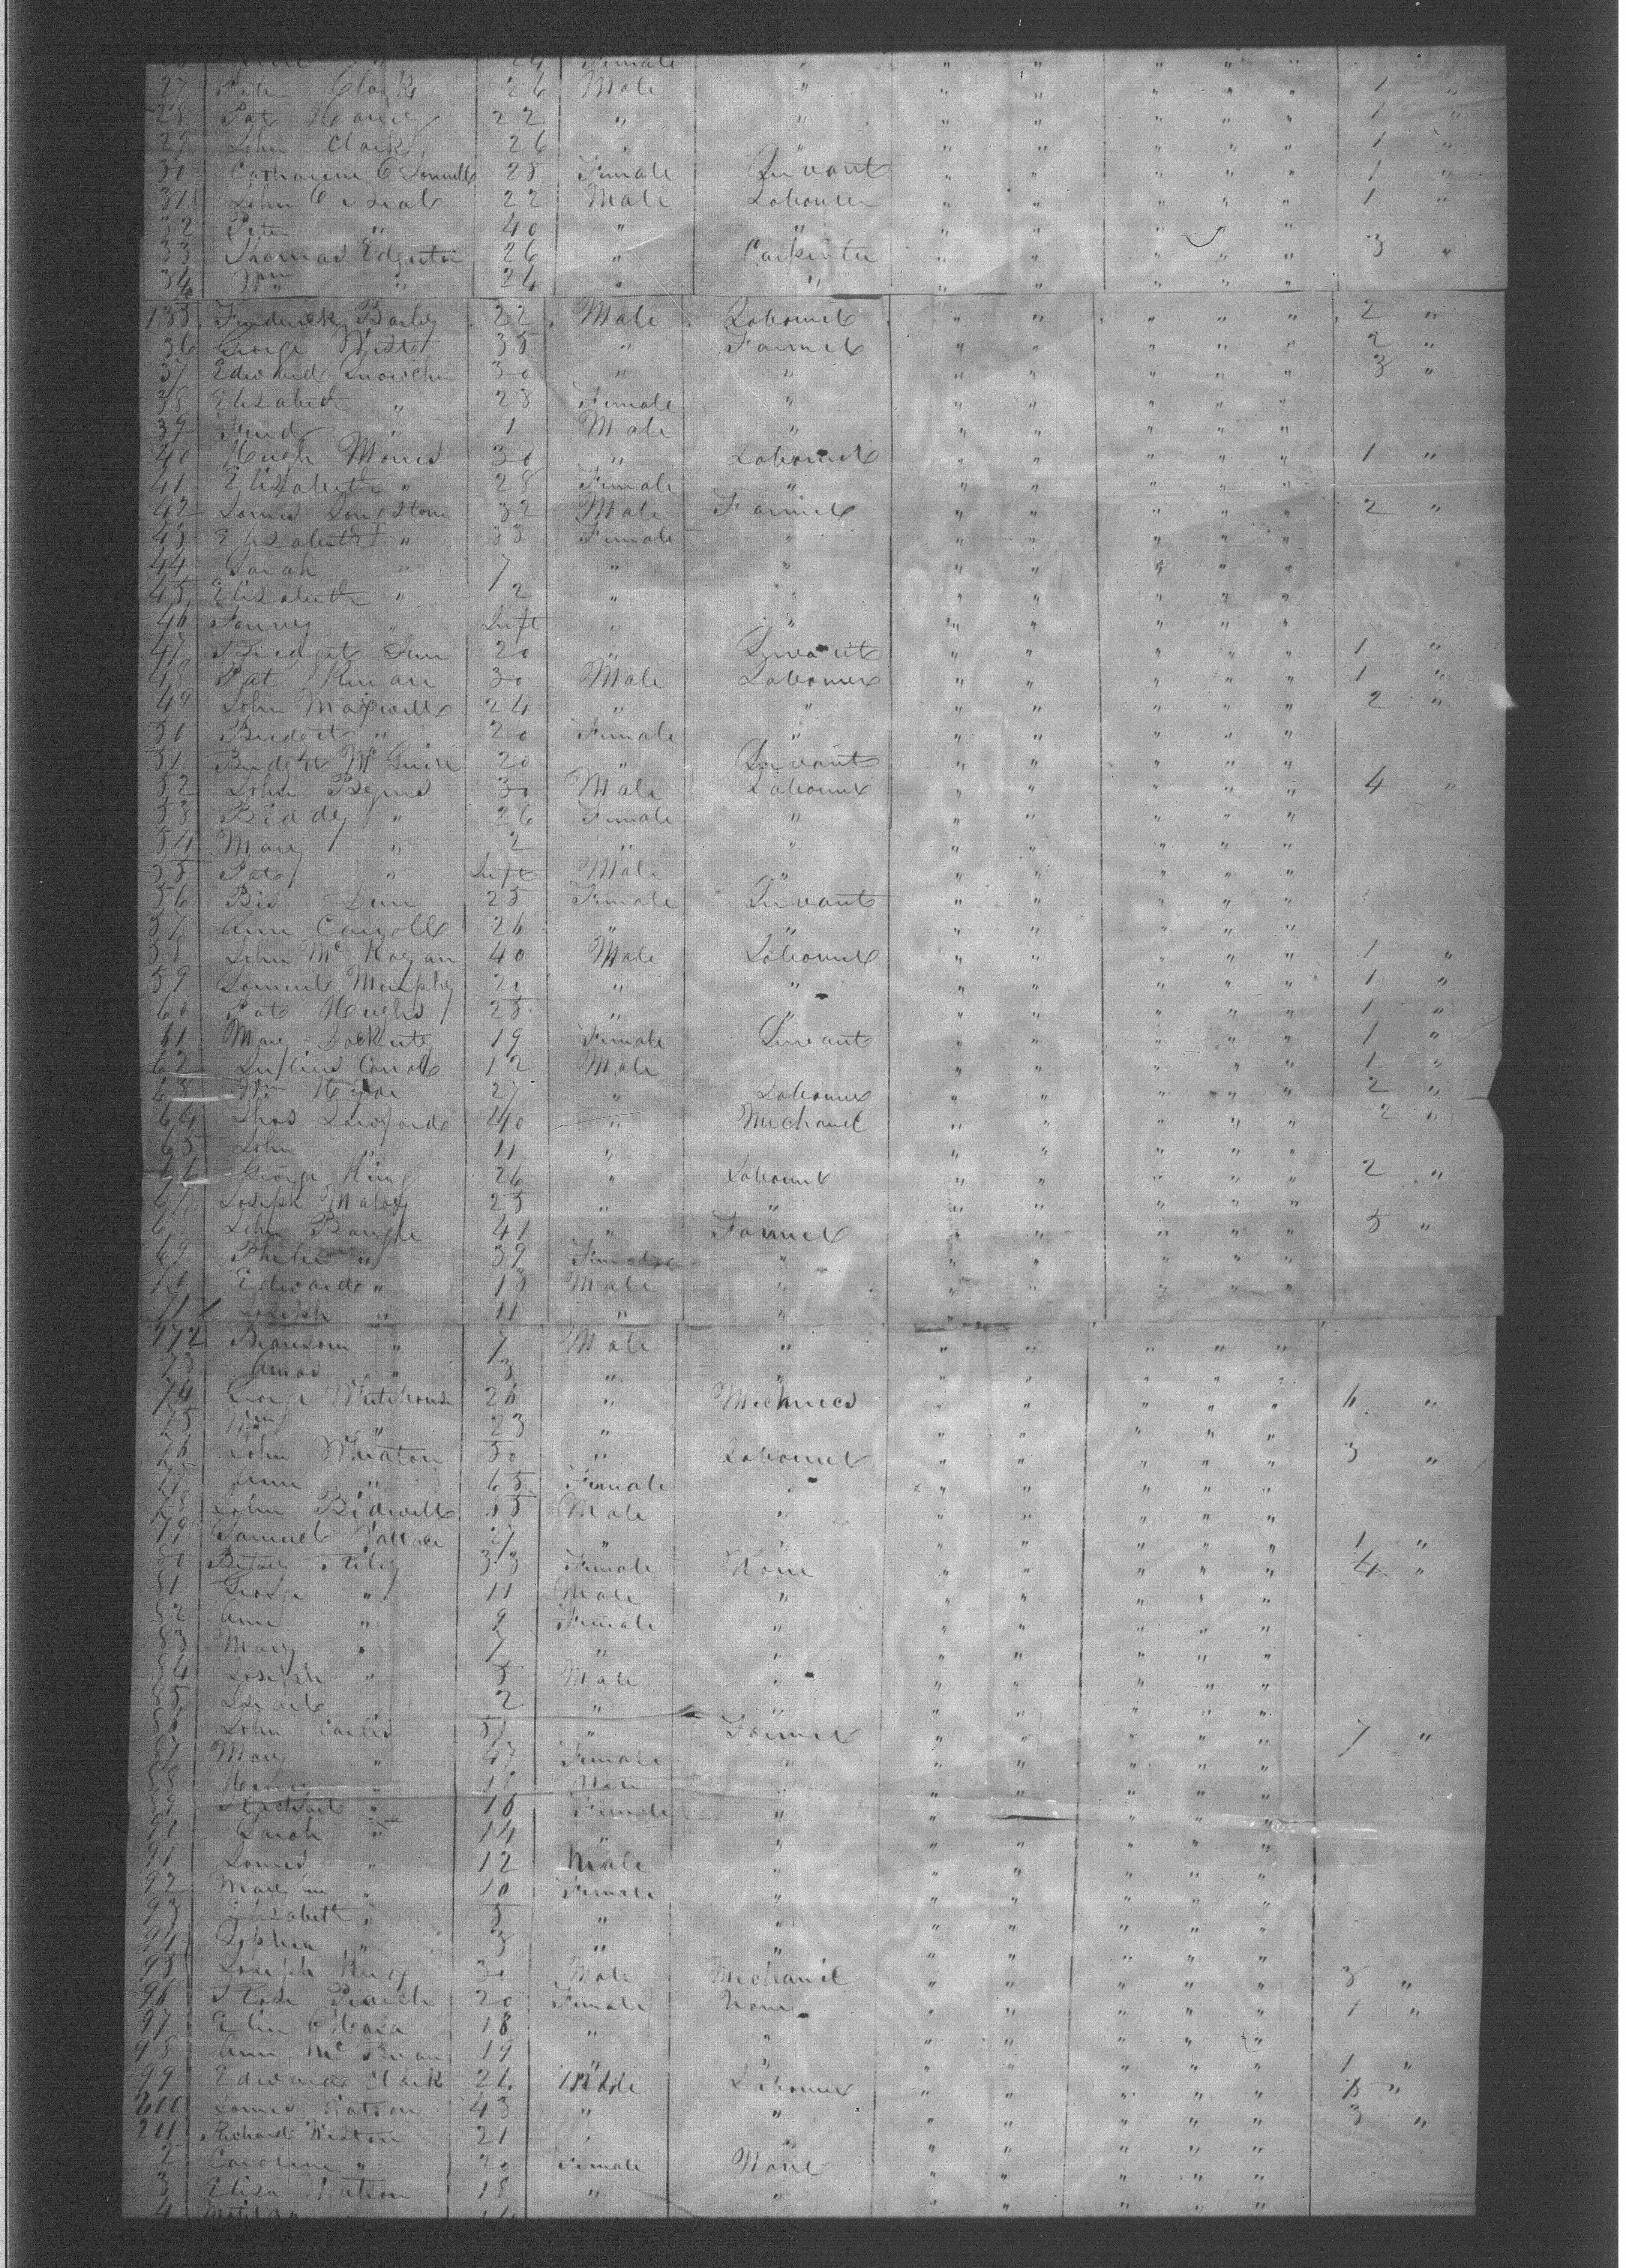 Female " " " " " "
27 Peter Clark 26 Male " " " " " " 1 "
28 Pat 22 " " " " " " " 1 "
29 John Clark 26 " " " " " " " 1 "
30 Catharine O Donnell 25 Female Servant " " " " " 1 "
31 John 22 Male Labourer " " " " " 1 "
32 Peter " 40 " " " " " " "
33 Thomas Edgerton 26 " Carpenter " " " " " 3 "
34 Wm " 24 " " " " " " "
135 Frederick Bailey 22 Male Labourer " " " " " 2 "
36 George West 35 " Farmer " " " " " 2 "
37 Edward 30 " " " " " " " 3 "
38 Elizabeth " 28 Female " " " " " "
39 Fred " 1 Male " " " " " "
40 Hugh Morris 30 " Labourer " " " " " 1 "
41 Elizabeth " 28 Female " " " " " "
42 James Longstone 32 Male Farmer " " " " " 2 "
43 Elizabeth " 33 Female " " " " " "
44 Sarah " 7 " " " " " " "
45 Elizabeth " 2 " " " " " " "
46 Fanney " Inft " " " " " " "
47 Bridget 20 " Servant " " " " " 1 "
48 Pat Kinan 30 Male Labourer " " " " " 1 "
49 John Maxwell 24 " " " " " " " 2 "
50 Bridget " 20 Female " " " " " "
51 Bridget Mc Guire 20 " Servant " " " " "
52 John Byrns 30 Male Labourer " " " " " 4 "
53 Biddy " 26 Female " " " " " "
54 Mary " 2 " " " " " " "
55 Pat " Inft Male " " " " " "
56 Bid Dun 25 Female Servant " " " " "
57 Ann Carroll 26 " " " " " " "
58 John Mc Kagan 40 Male Labourer " " " " " 1 "
59 Samuel Murphy 20 " " " " " " " 1 "
60 Pat Hughs 25 " " " " " " " 1 "
61 Mary Dockerty 19 Female Servant " " " " " 1 "
62 Carrol 12 Male " " " " " 1 "
63 Wm 27 " Labourer " " " " " 2 "
64 Thos 40 " Mechanic " " " " " 2 "
65 John " 11 " " " " " "
66 George King 26 " Labourer " " " " " 2 "
67 Joseph 25 " " " " " " "
68 John 41 " Farmer " " " " " 5 "
69 Phebe " 39 Female " " " " " "
70 Edward " 13 Male " " " " " "
71 Joseph " 11 " " " " " " "
172 Bransom " 7 Male " " " " " "
73 Amos " 3 " " " " " " "
74 George Whitehouse 26 " Mechnics " " " " " 6 "
75 Wm " 23 " " " " " "
76 John Wheaton 50 " Labourer " " " " " 3 "
77 Ann " 65 Female " " " " " "
78 John Bidwell Male " " " " " "
79 Samuel Wallace 27 " " " " " " 1 "
80 Betsey Riley 33 Female None " " " " " 4 "
81 George " 11 Male " " " " " "
82 Ann " 9 Female " " " " " "
83 Mary " 7 " " " " " " "
84 Joseph " 5 Male " " " " " "
85 " 2 " " " " " " "
86 John 51 " Farmer " " " " " 7 "
87 Mary " 47 Female " " " " " "
88 Henry " 18 Male " " " " " "
89 Rachael " 16 Female " " " " " "
90 Sarah " 14 " " " " " " "
91 James " 12 Male " " " " " "
92 Mary Ann " 10 Female " " " " " "
93 Elizabeth " 5 " " " " " " "
94 Sophia " 3 " " " " " " "
95 Joseph King 30 Male Mechanic " " " " " 3 "
96 Rose 20 Female None " " " " " 1 "
97 Ellen O Hara 18 " " " " " " "
98 Ann Mc 19 " " " " " " " 1 "
99 Edward Clark 24 Male Labourer " " " " " "
200 James Watson 43 " " " " " " " 3 "
201 Richard Weston 21 " " " " " " "
2 Caroline " 20 Female None " " " " "
3 Eliza Watson 18 " " " " " " "
4 Matilda